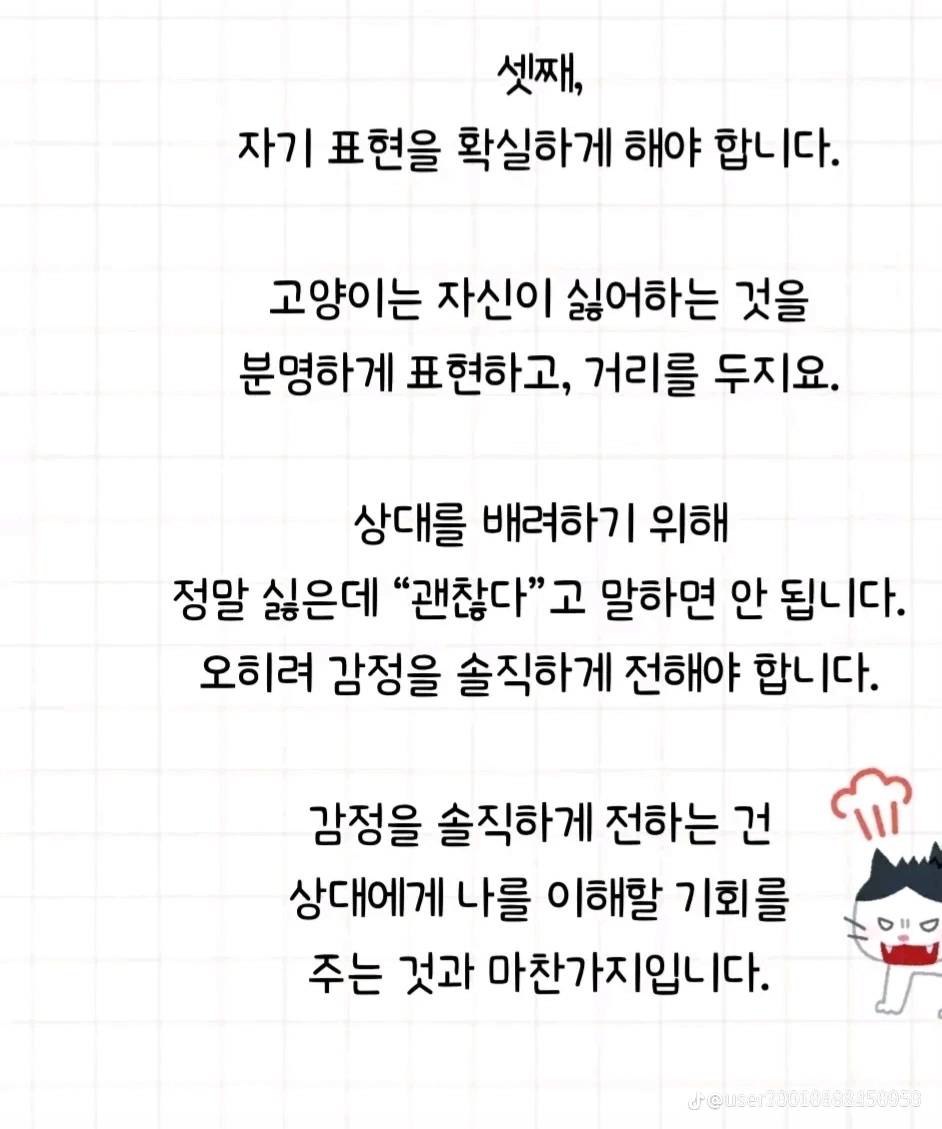 셋째,
자기 표현을 확실하게 해야 합니다.
고양이는 자신이 싫어하는 것을
분명하게 표현하고, 거리를 두지요.
상대를 배려하기 위해
정말 싫은데 “괜찮다”고 말하면 안 됩니다.
오히려 감정을 솔직하게 전해야 합니다.
감정을 솔직하게 전하는 건
상대에게 나를 이해할 기회를
주는 것과 마찬가지입니다.